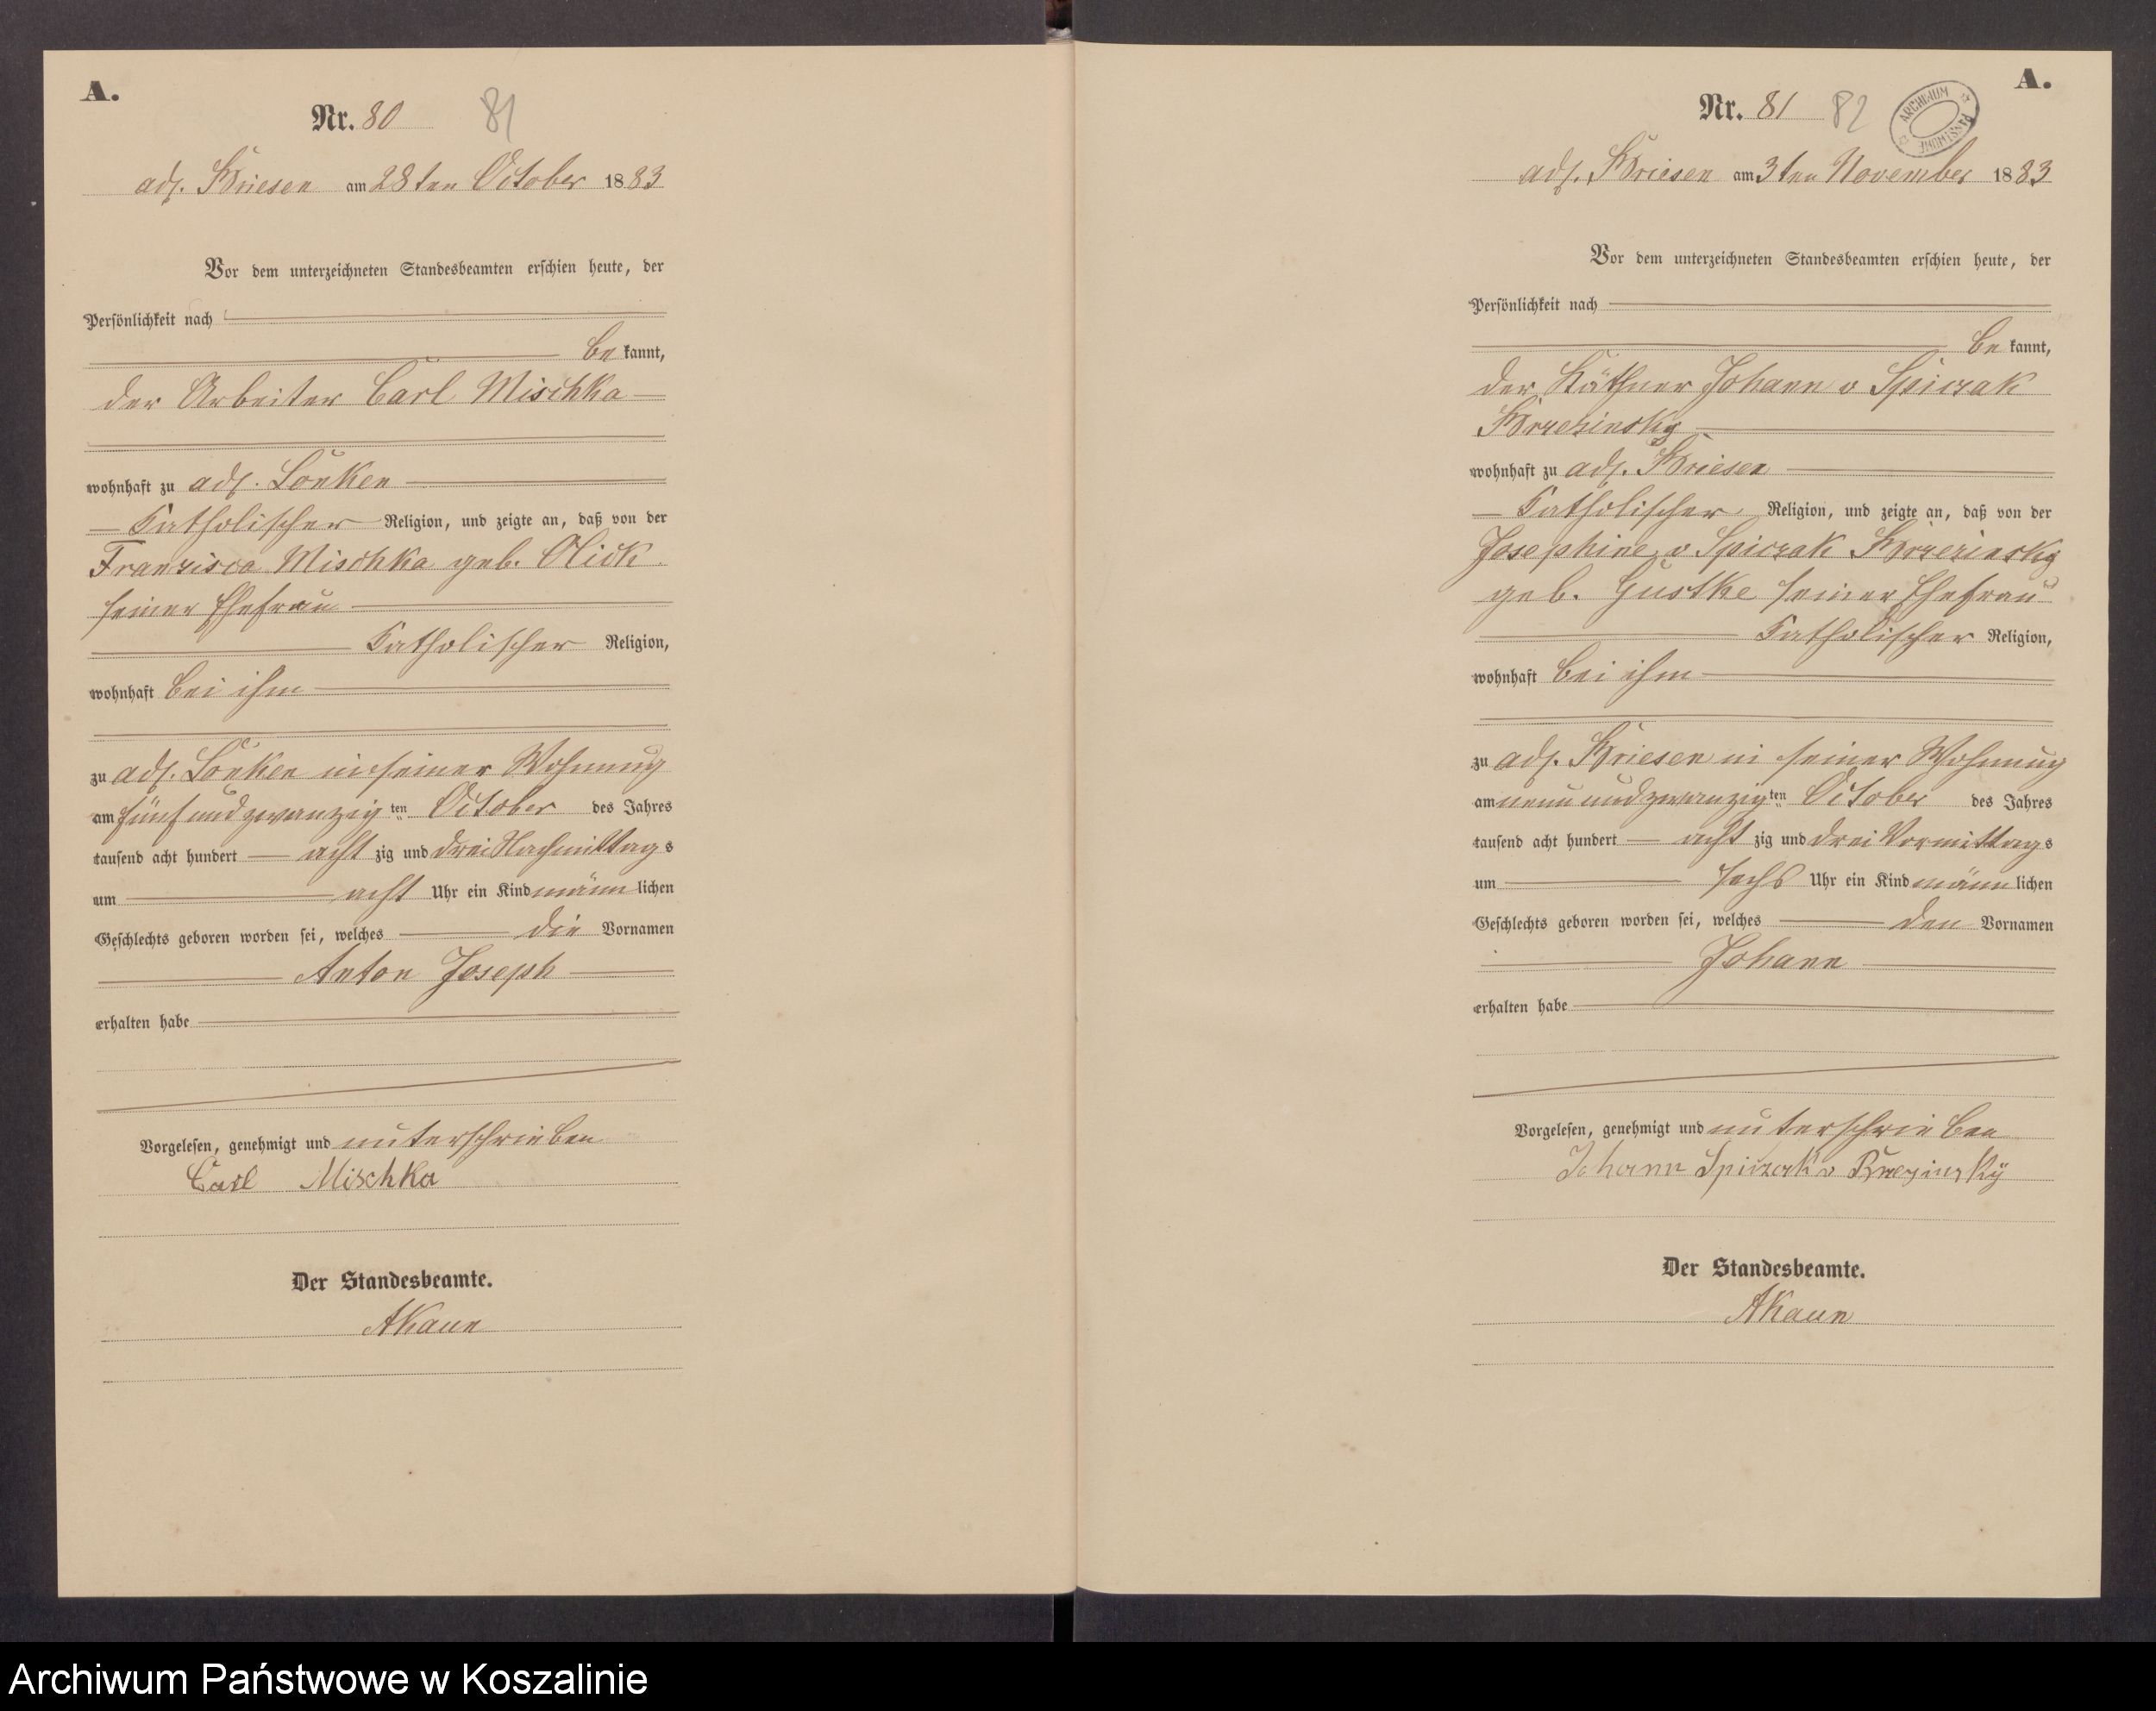 A.
Nr. 80 81
adl. Briesen am 28ten October 1883
Vor dem unterzeichneten Standesbeamten erschien heute, der
Persönlichkeit nach
be kannt,
der Arbeiter Carl Mischka
wohnhaft zu adl. Lonken
Katholischer Religion, und zeigte an, daß von der
Franzisca Mischka geb. Olick
seiner Ehefrau
Katholischer Religion,
wohnhaft bei ihm
zu adl. Lonken in seiner Wohnung
am fünf und zwanzig ten October des Jahres
tausend acht hundert acht zig und drei Nachmittag s
um acht Uhr ein Kind männ lichen
Geschlechts geboren worden sei, welches die Vornamen
Anton Joseph
erhalten habe
Vorgelesen, genehmigt und unterschrieben
Carl Mischka
Der Standesbeamte.
AKaun
A.
Nr. 81 82
ARCHIWUM PAŃSTWOWE
adl. Briesen am 3ten November 1883
Vor dem unterzeichneten Standesbeamten erschien heute, der
Persönlichkeit nach
be kannt,
der Käthner Johann v Spiczak
Brzezinsky
wohnhaft zu adl. Briesen
Katholischer Religion, und zeigte an, daß von der
Josephine v Spiczak Brzezinsky
geb. Gustke seiner Ehefrau
Katholischer Religion,
wohnhaft bei ihm
zu adl. Briesen in seiner Wohnung
am neun und zwanzig ten October des Jahres
tausend acht hundert acht zig und drei Vormittag s
um sechs Uhr ein Kind männ lichen
Geschlechts geboren worden sei, welches den Vornamen
Johann
erhalten habe
Vorgelesen, genehmigt und unterschrieben
Johann Spiczak v Brzezinsky
Der Standesbeamte.
AKaun
Archiwum Państwowe w Koszalinie